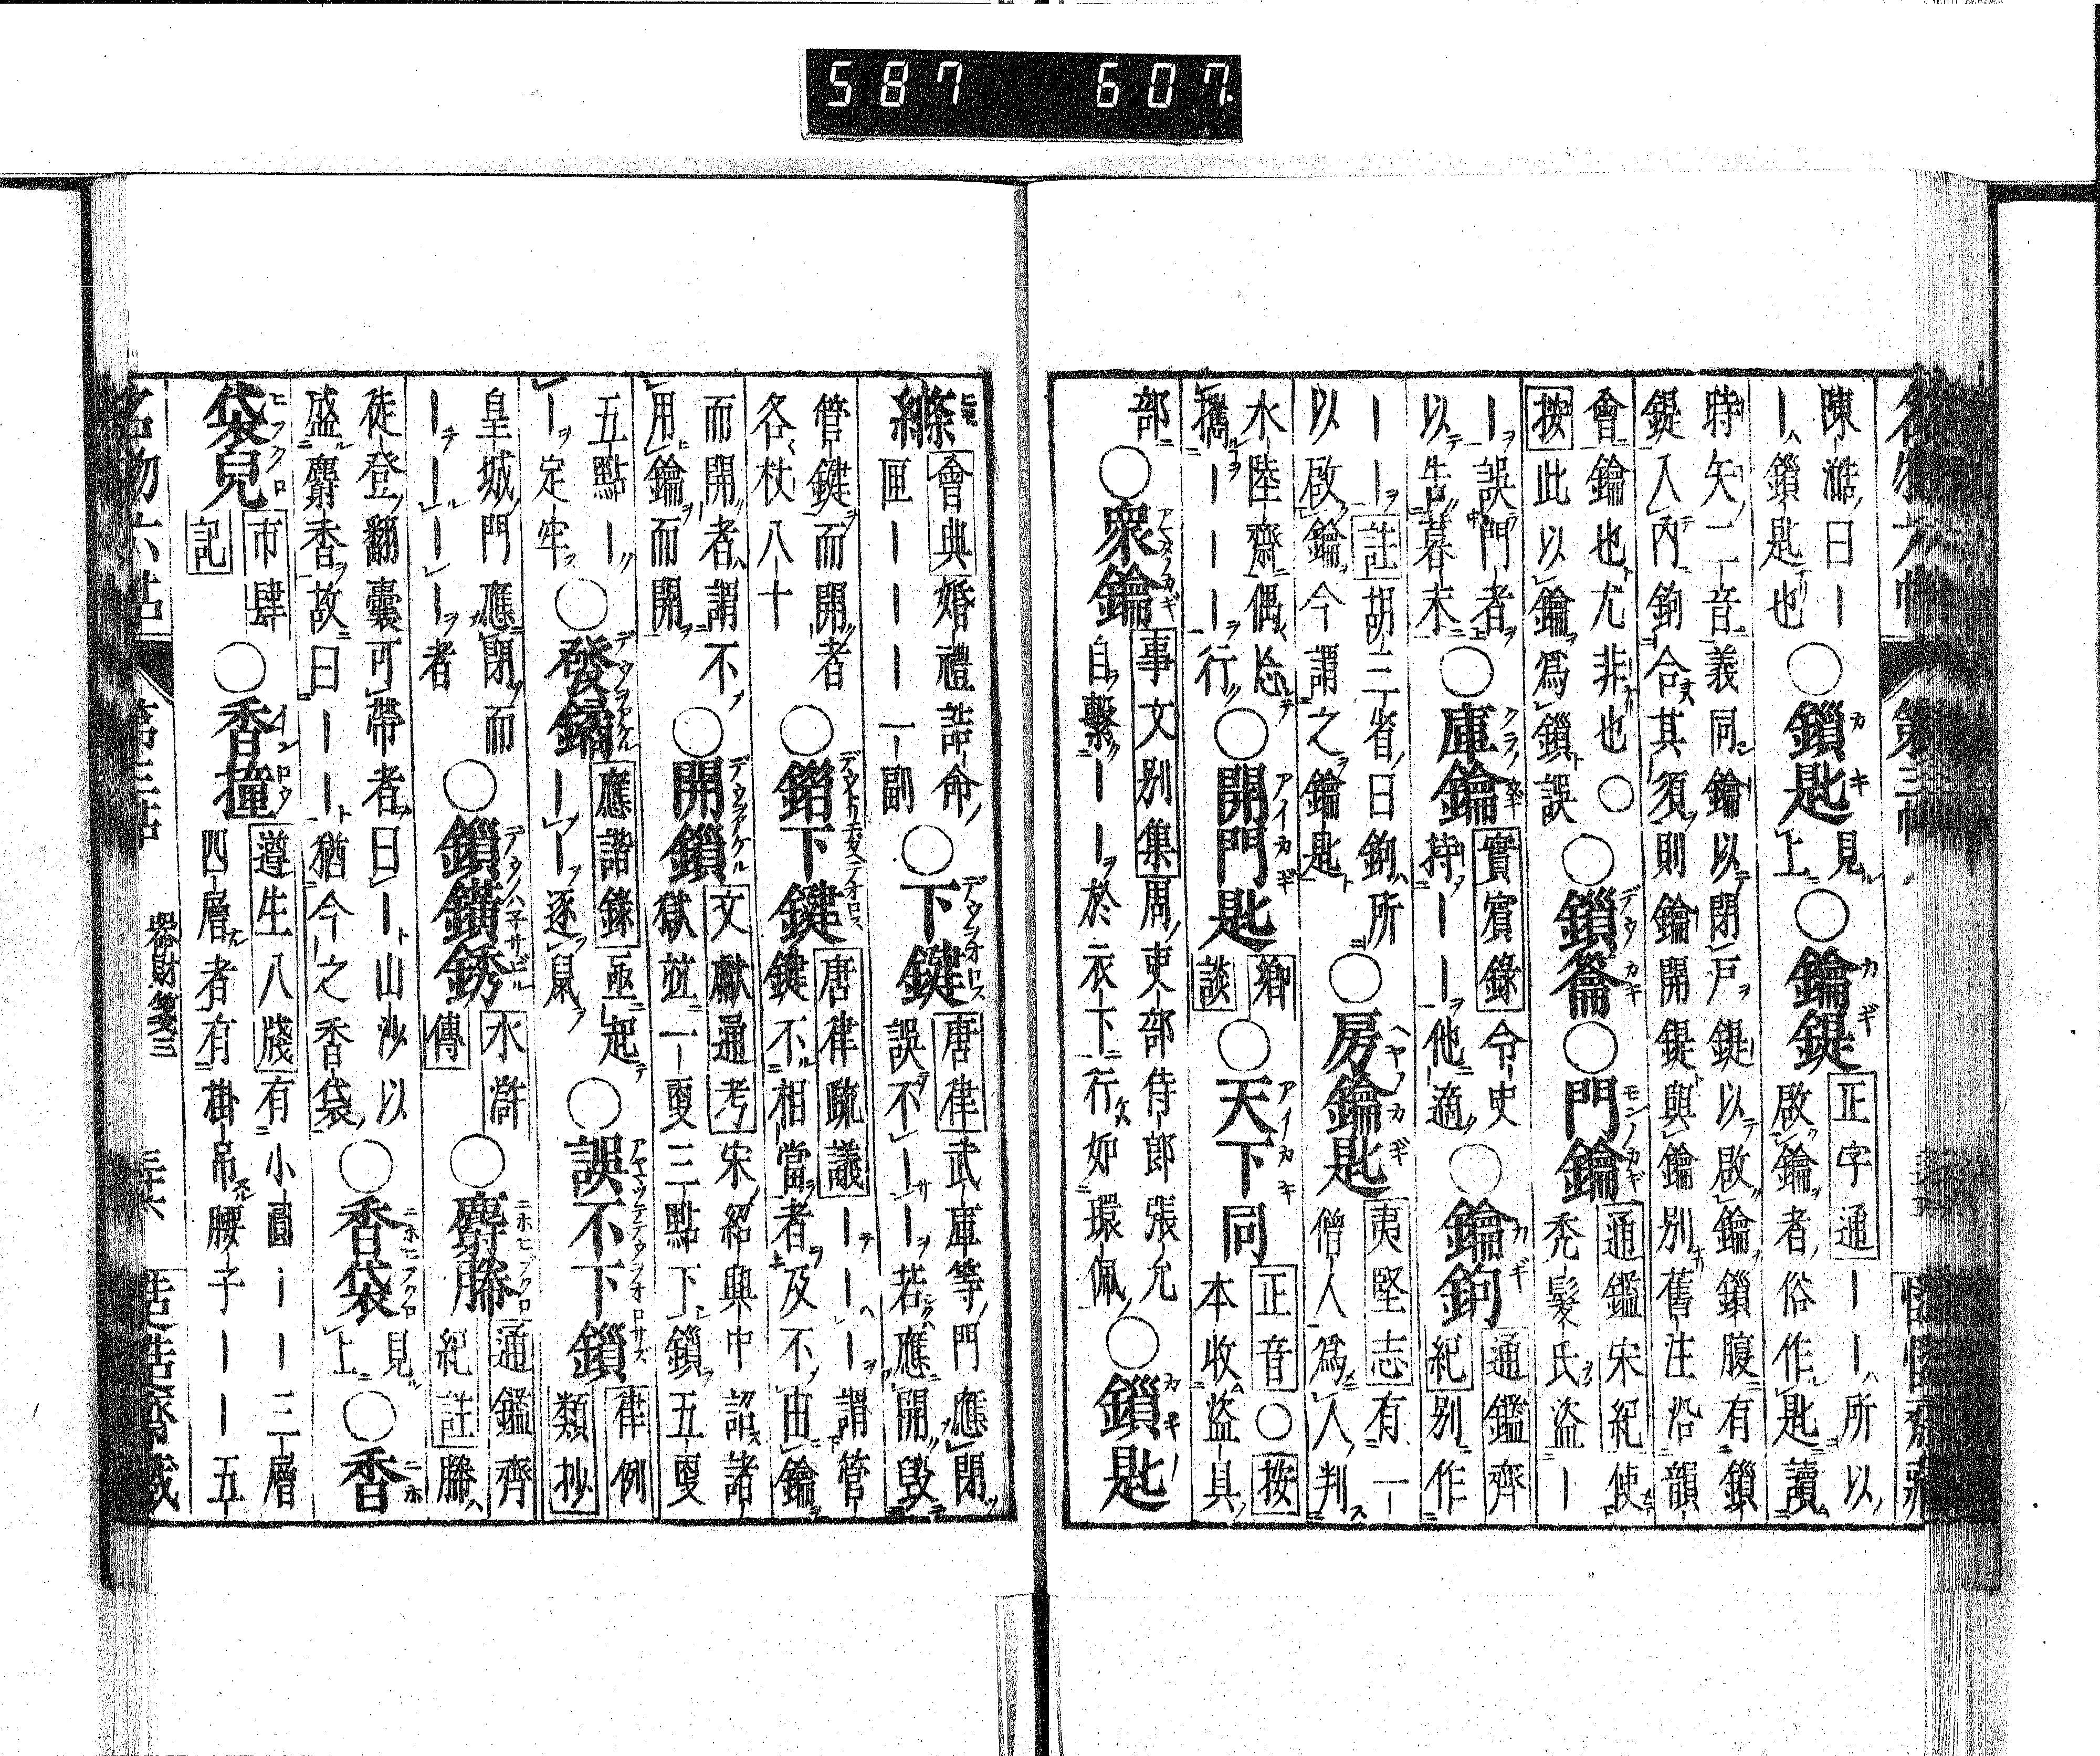 587 607
名物六帖 第三帖
陳澔曰ー
ー鎖匙也○鎖匙見上○鑰鍉正字通ーー所以
啟鑰者俗作匙讀
時矢二音義同鑰以閉戶鍉以啟鑰鎖腹有鎖
鍉入內鉤合其須則鑰開鍉與鑰別舊注沿韻
會鑰也尤非也○
按此以鑰爲鎖誤○鎖龠○門鑰通鑑宋紀使
禿髮氏盜ー
ー誤門者○庫鑰實賓錄令史
以告暮末 持ーー他適○鑰鉤通鑑齊
紀別作
ーー註胡三省曰鉤所
以啟鑰今謂之鑰匙○房鑰匙夷堅志有一
僧人爲人判
水陸齋偶忘
攜ーーー行○開門匙鄉
談○天下同正音○按
本收盜具
部○衆鑰事文別集周吏部侍郎張允
自繫ーー於衣下行如環佩○鎖匙
縧會典婚禮誥命
匣ーーーー一副○下鍵唐律武庫等門應閉
誤不ーー若應開毀
管鍵而開者
各杖八十○鎝下鍵唐律疏議ーーー謂管
鍵不相當者及不由鑰
而開者謂不
用鑰而開○開鎖文獻通考宋紹興中詔諸
獄並一更三點下鎖五更
五點ー
ー定牢○發鐍應諧錄亟起
ーー逐鼠○誤不下鎖律例
類抄
皇城門應閉而
ーーーー者○鎖鐄銹水滸
傳○麝幐通鑑齊
紀註幐
徒登翻囊可帶者曰ー山沙以
盛麝香故曰ーー猶今之香袋○香袋見
上○香
袋兒市肆
記○香撞遵生八牋有小圓ーー三層
四層者有掛吊腰子ーー五
名物六帖 第三帖 器財箋三